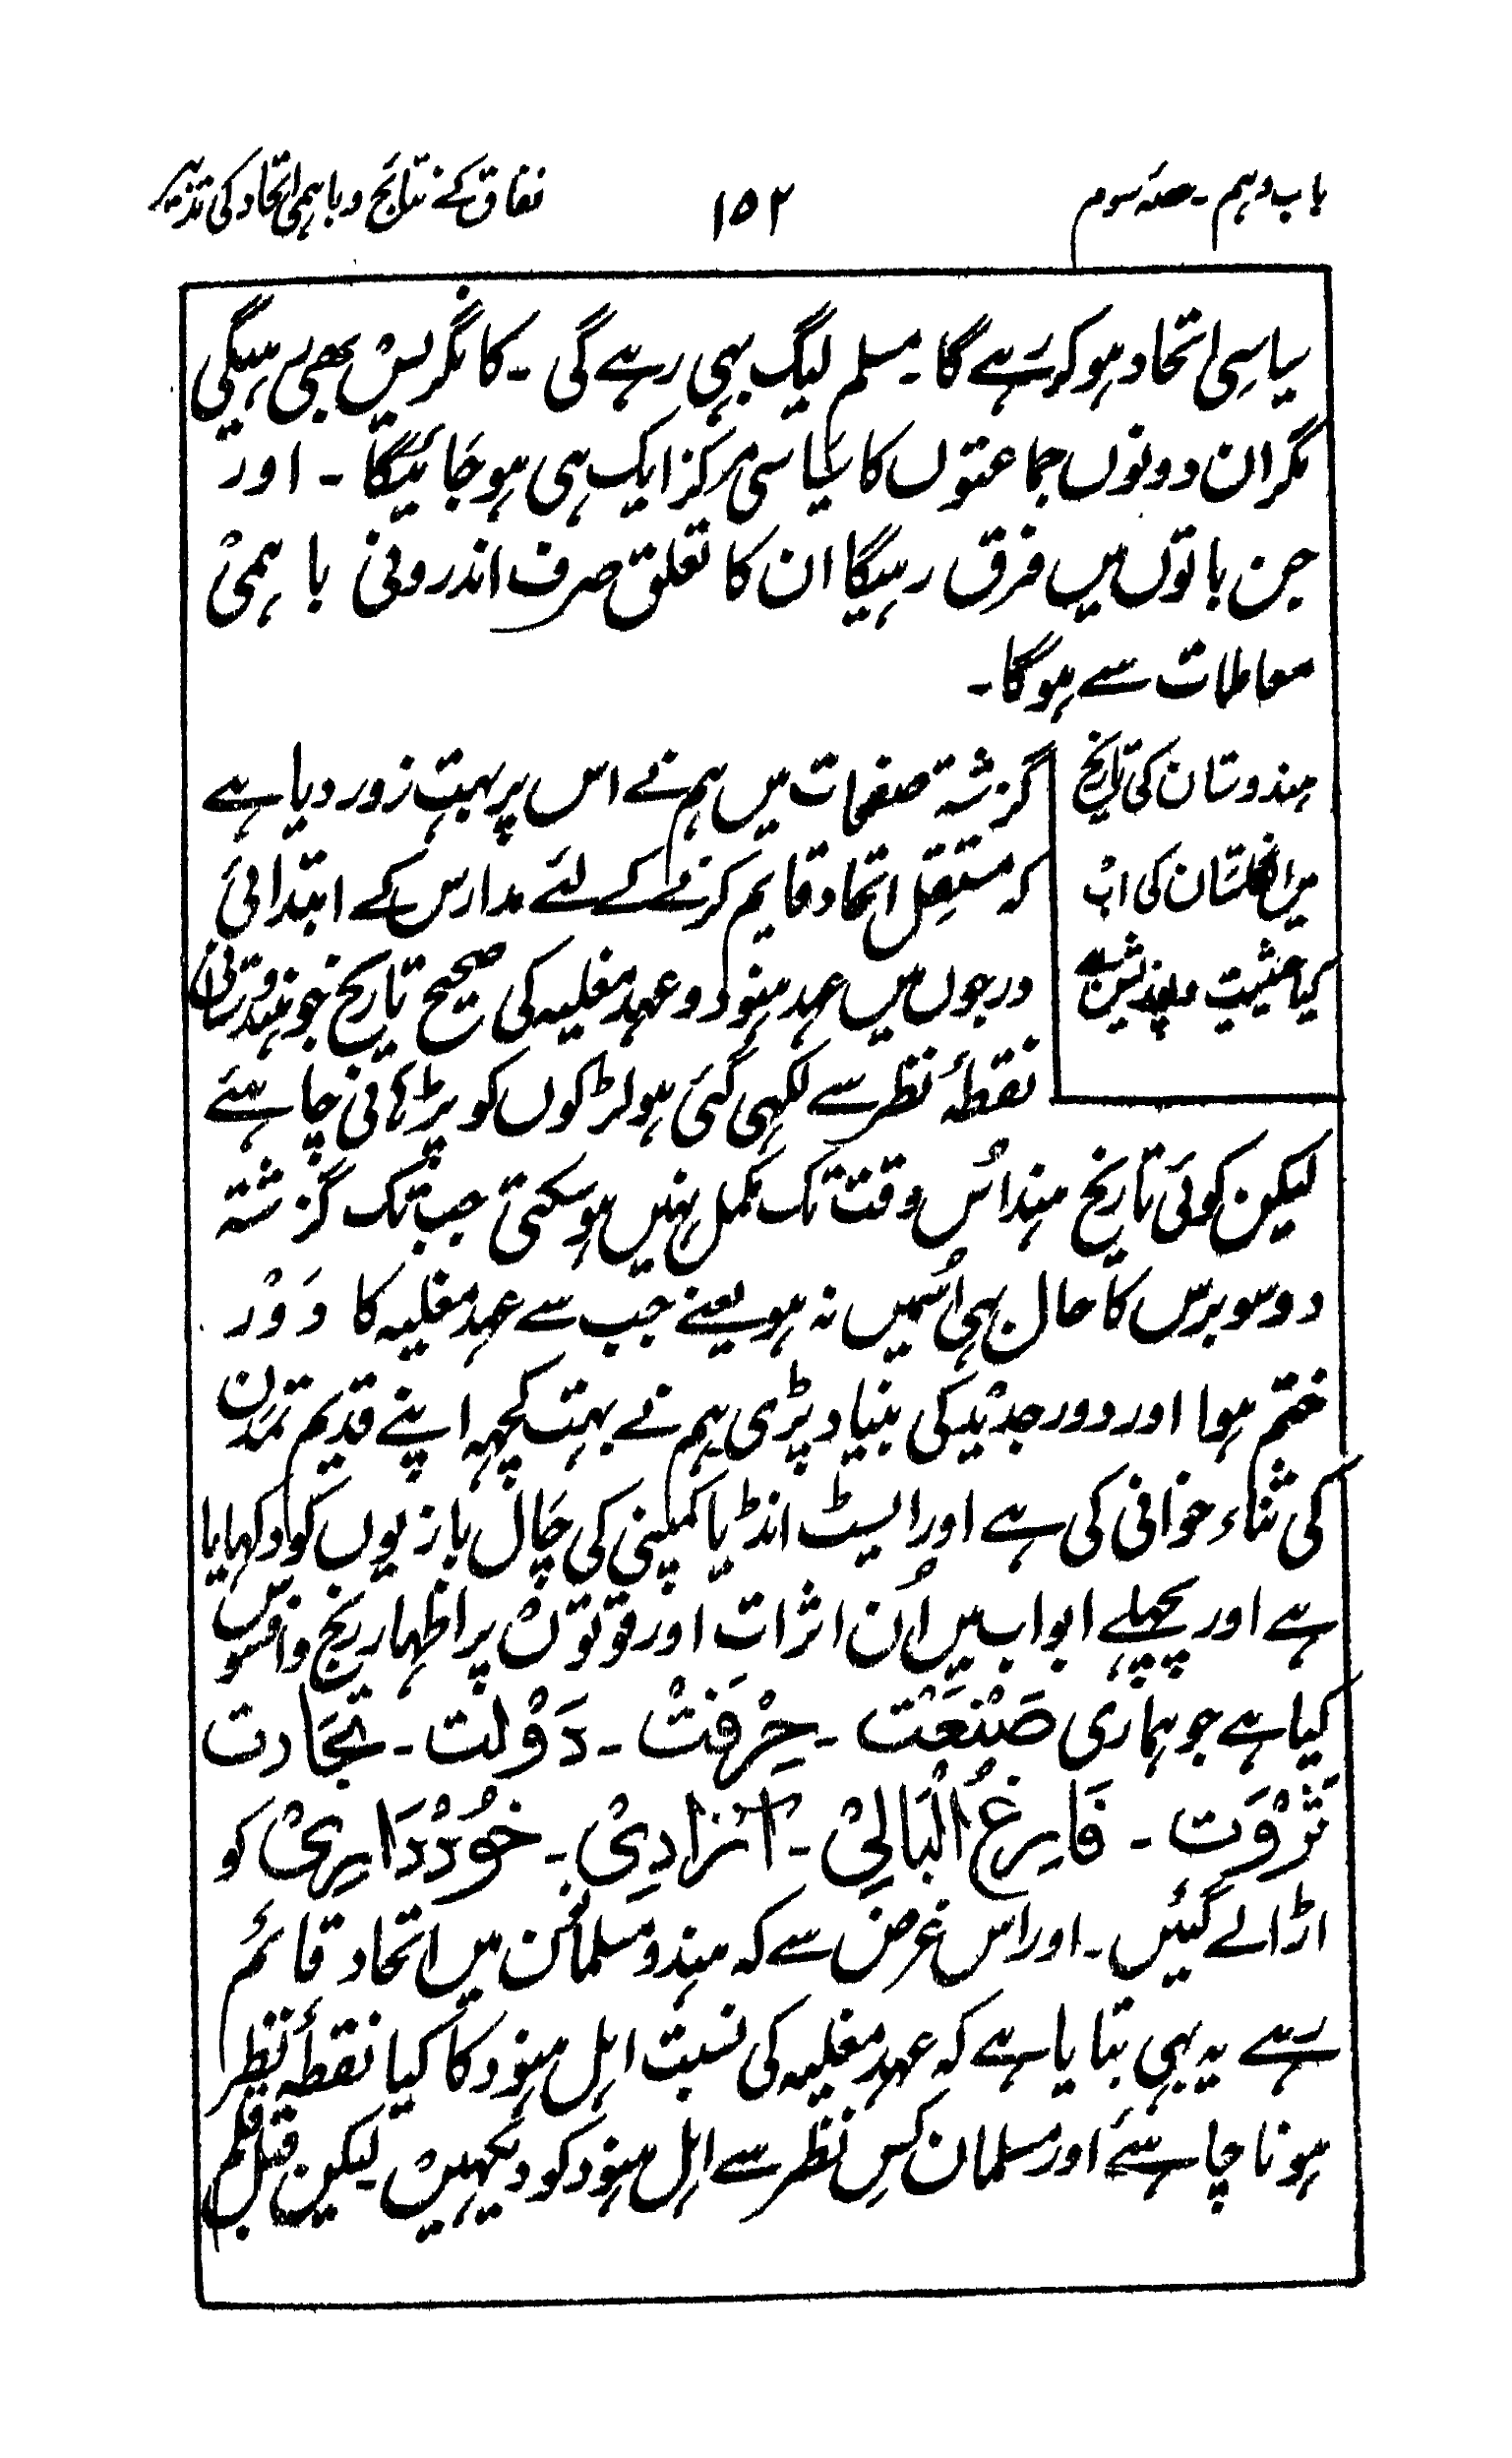 باب دہم۔ حصہ سوم
۱۵۲
نفاق کے نتائج و باہمی اتحاد کی تدابیر
سیاسی اتحاد ہو کر رہے گا۔ مسلم لیگ بہی رہے گی۔ کانگریس بھی رہیگی
مگر ان دونوں جماعتوں کا سیاسی مرکز ایک ہی ہو جائیگا۔ اور
جن باتوں میں فرق رہیگا ان کا تعلق صرف اندرونی باہمی
معاملات سے ہوگا۔
ہندوستان کی تاریخ
میں انگلستان کی اب
کیا حیثیت و پوزیشن ہے
گزشتہ صفحات میں ہم نے اس پر بہت زور دیا ہے
کہ مستقل اتحاد قایم کرنے کے لئے مدارس کے ابتدائی
درجوں میں عہد ہنود و عہد مغلیہ کی صحیح تاریخ جو ہندوستانی
نقطۂ نظر سے لکہی گئی ہو لڑکوں کو پڑہانی چاہئے
لیکن کوئی تاریخ ہند اُس وقت تک مکمل نہیں ہو سکتی جب تک گزشتہ
دو سو برس کا حال بہی اُسمیں نہ ہو یعنے جب سے عہد مغلیہ کا دَوْر
ختم ہوا اور دور جدید کی بنیاد پڑی ہم نے بہت کچہہ اپنے قدیم تمدن
کی ثناء خوانی کی ہے اور ایسٹ انڈیا کمپنی کی چال بازیوں کو دکہایا
ہے اور پچہلے ابواب میں اُن اثرات اور قوتوں پر اظہار رنج و افسوس
کیا ہے جو ہماری صَنْعَت۔ حِرْفَتْ۔ دَوْلت۔ تجَارت
ثَرْوَت۔ فَارِغُ الْبَالِیْ۔ آزادِیْ۔ خُوْدْدَارِیْ کو
اڑا لے گئیں۔ اور اس غرض سے کہ ہندو مسلمانوں میں اتحاد قائم
رہے یہ بہی بتایا ہے کہ عہد مغلیہ کی نسبت اہل ہنود کا کیا نقطۂ نظر
ہونا چاہئے اور مسلمان کس نظر سے اہل ہنود کو دیکہیں لیکن قبل قلم